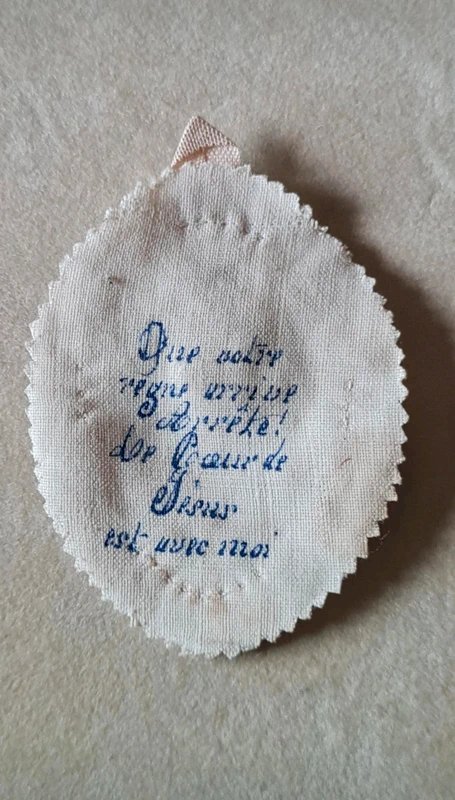 Que votre
regne arrive
Arrête!
Le Cœur de
Jésus
est avec moi